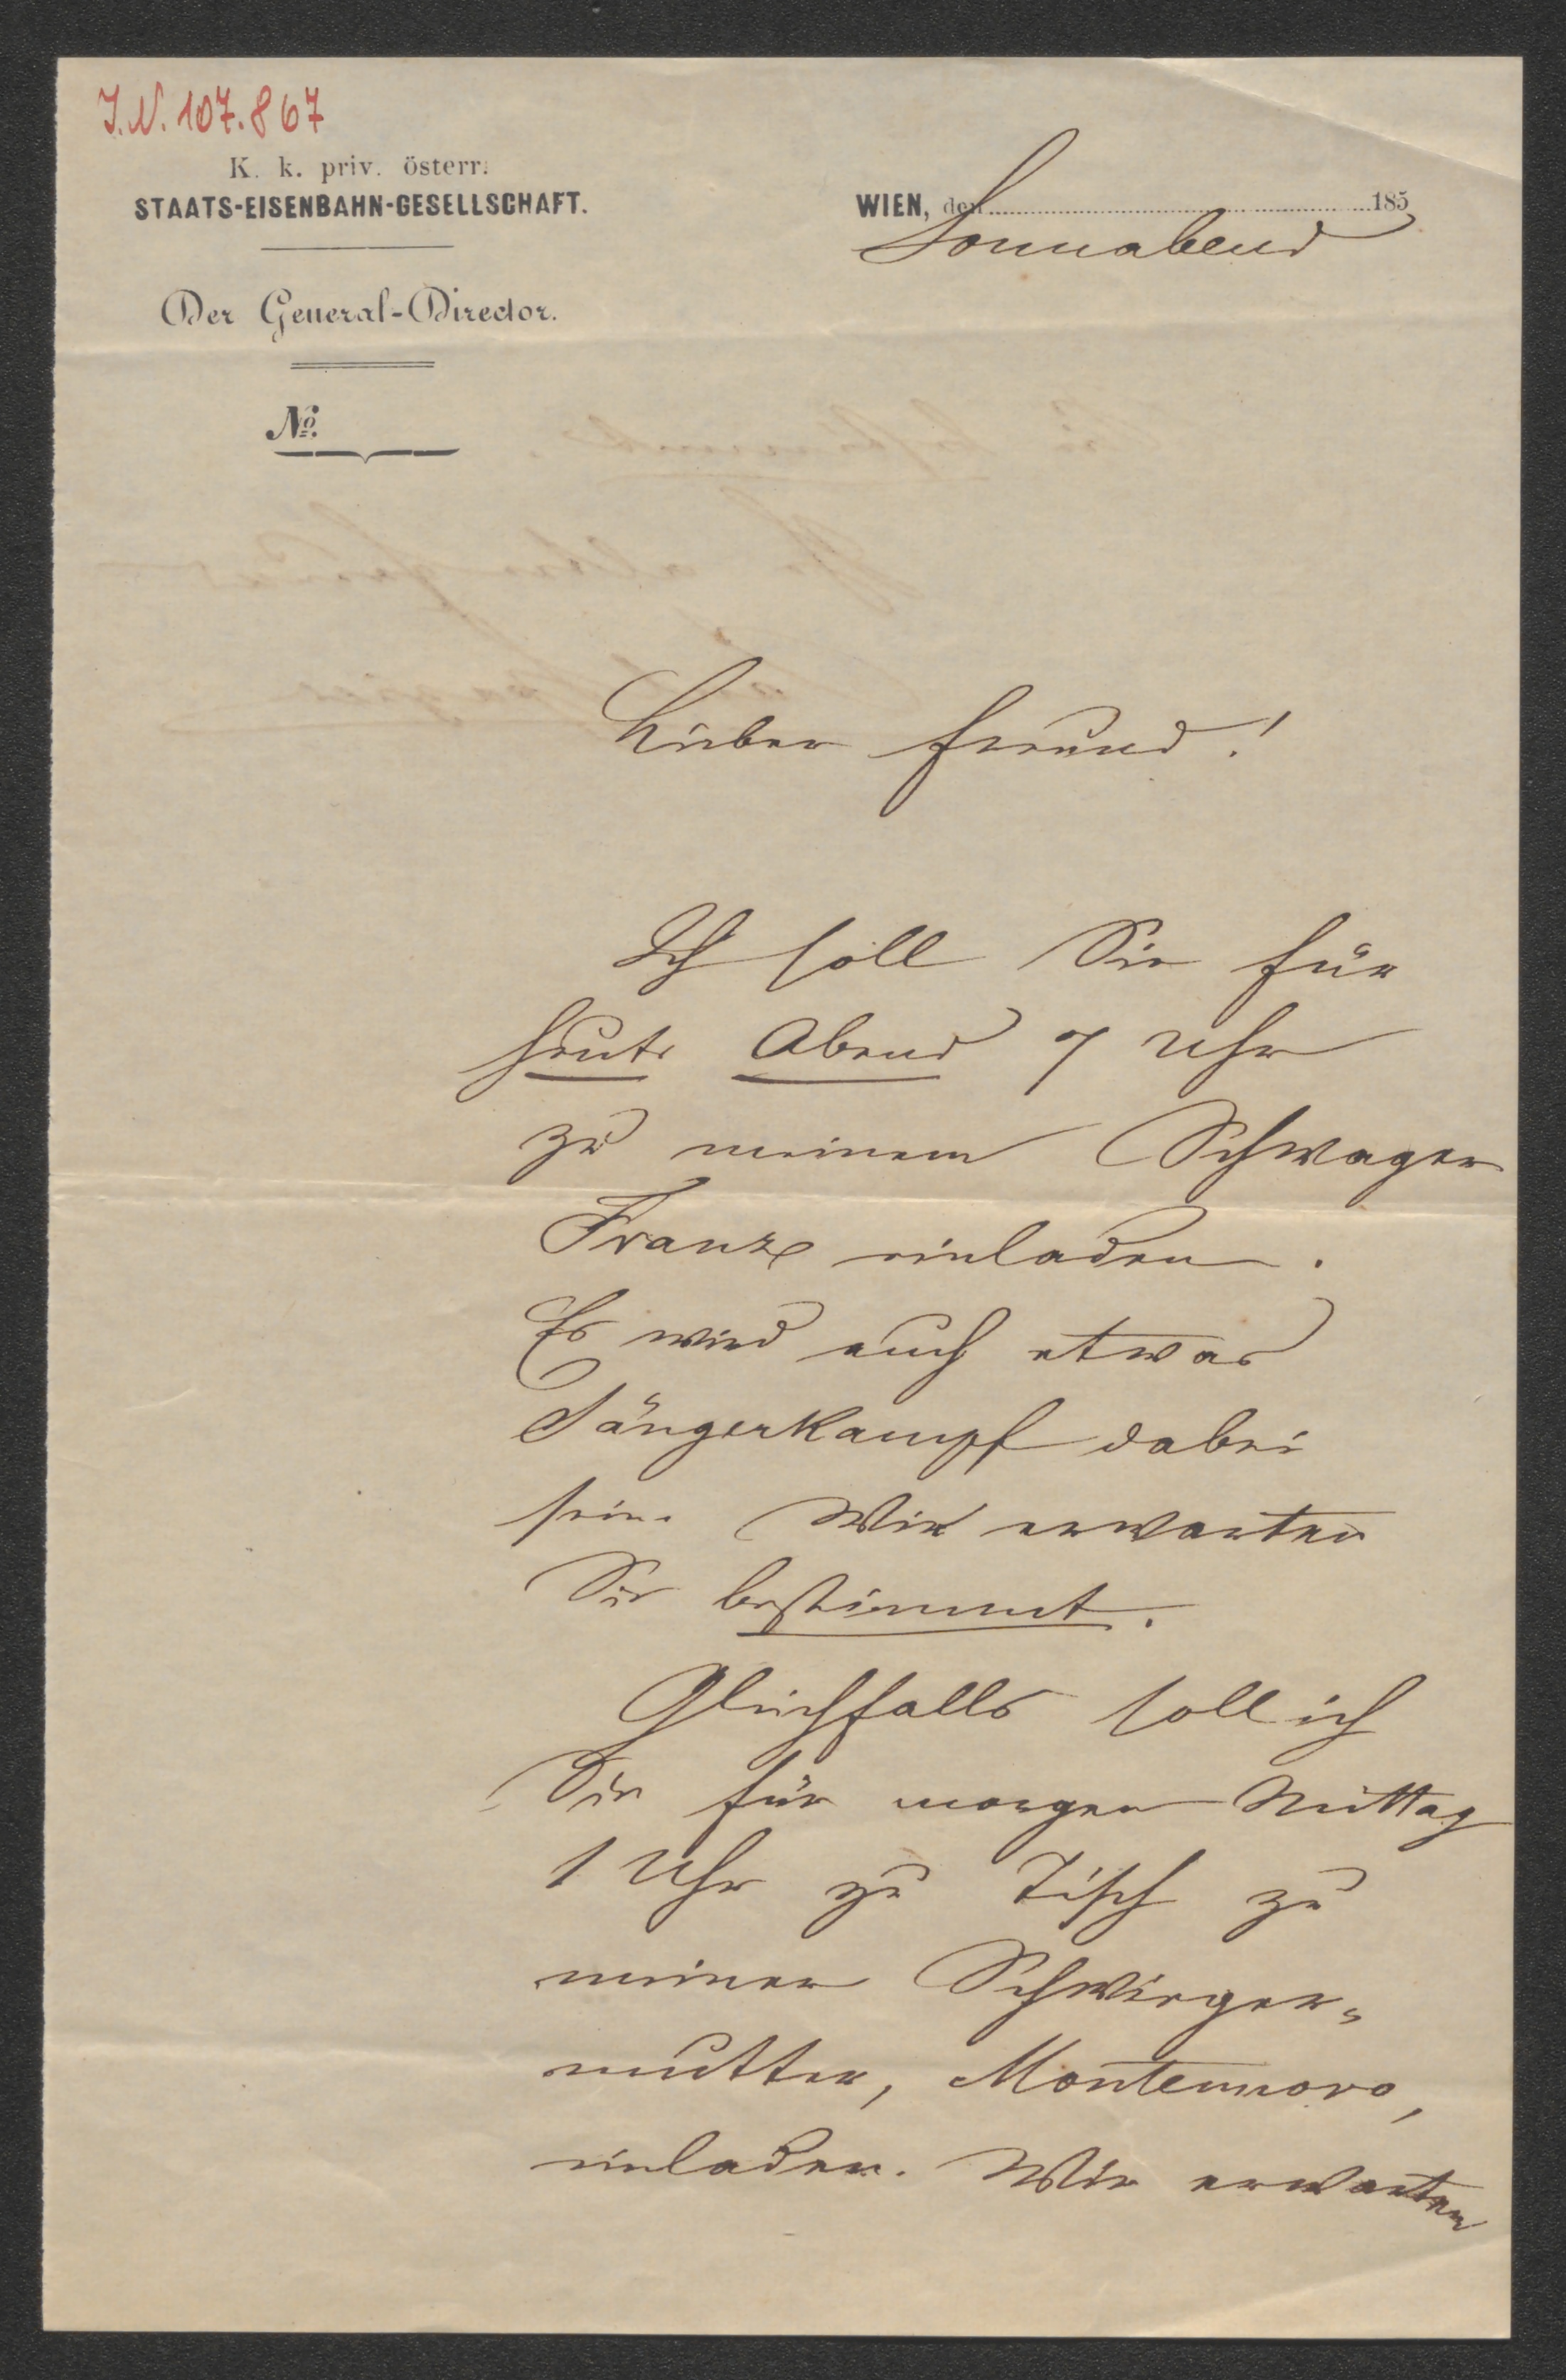 J.N. 107.867
K. k. priv. österr.
STAATS-EISENBAHN-GESELLSCHAFT.
Der General-Director.
No.
WIEN, den 185
Sonnabend
Lieber Freund!
Ich soll Sie für
heute Abend 7 Uhr
zu meinem Schwager
Franz einladen.
Es wird auch etwas
Sängerkampf dabei
sein. Wir erwarten
Sie bestimmt.
Gleichfalls soll ich
Sie für morgen Mittag
1 Uhr zu Tisch zu
meiner Schwieger-
mutter, Montenuovo,
einladen. Wir erwarten